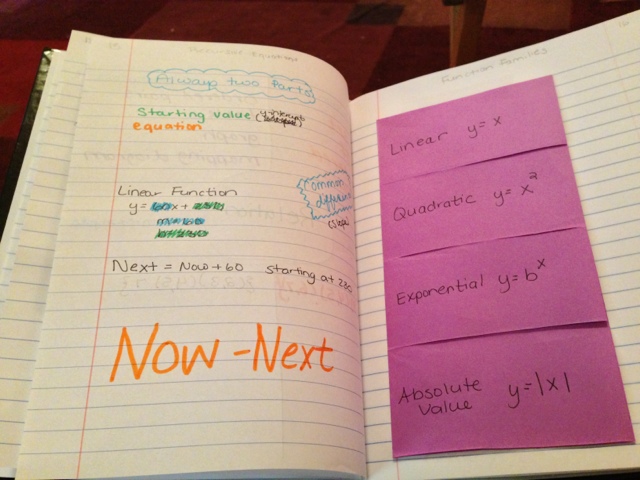 Recursive Equations
Always two Parts
Starting value (y-intercept)
equation
Linear Function
y= x +
Common
difference
(slope)
Next = Now + 60 starting at
Now - Next
Function Families
Linear y= x
Quadratic y= x²
Exponential y= bˣ
Absolute
Value y=|x|